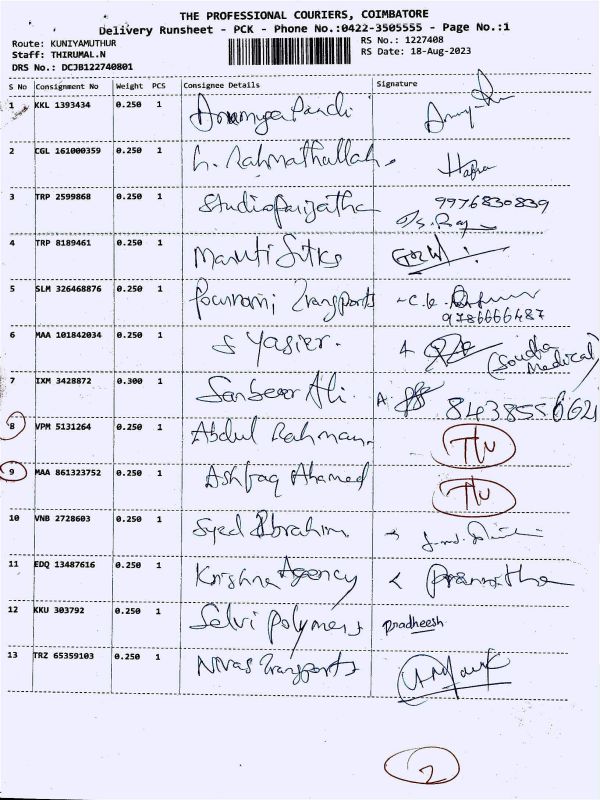 THE PROFESSIONAL COURIERS, COIMBATORE
Delivery Runsheet - PCK - Phone No.:0422-3505555 - Page No.:1
Route: KUNIYAMUTHUR
RS No.: 1227408
Staff: THIRUMAL.N
RS Date: 18-Aug-2023
DRS No.: DCJB122740801
S No Consignment No Weight PCS Consignee Details Signature
1 KKL 1393434 0.250 1
2 CGL 161000359 0.250 1 Rahmathullah
3 TRP 2599868 0.250 1 Studioparijatha 9976830839
4 TRP 8189461 0.250 1 Maruti Silks
5 SLM 326468876 0.250 1 Pournami Transports
9786666487
6 MAA 101842034 0.250 1 S Yasier. (Soudha Medical)
7 IXM 3428872 0.300 1 Ali. A 8438556621
8 VPM 5131264 0.250 1 Abdul Rahman
9 MAA 861323752 0.250 1 Ashfaq Ahamed
10 VNB 2728603 0.250 1 Syed Ibrahim
11 EDQ 13487616 0.250 1 Krishna Agency
12 KKU 303792 0.250 1 Selvi Polymers Pradheesh
13 TRZ 65359103 0.250 1 Nivas Transports
2